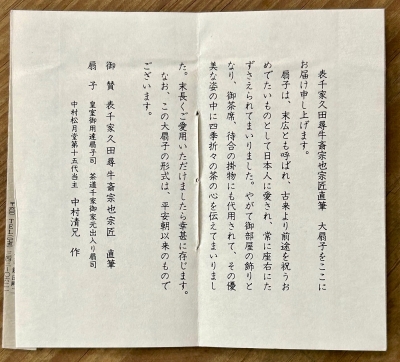 表千家久田尋牛斎宗也宗匠直筆　大扇子をここに
お届け申し上げます。
扇子は、末広とも呼ばれ、古来より前途を祝うお
めでたいものとして日本人に愛され、常に座右にた
ずさえられてまいりました。やがて御部屋の飾りと
なり、御茶席、待合の掛物にも代用されて、その優
美な姿の中に四季折々の茶の心を伝えてまいりまし
た。末長くご愛用いただけましたら幸甚に存じます。
なお、この大扇子の形式は、平安朝以来のもので
ございます。
御賛　表千家久田尋牛斎宗也宗匠　直筆
扇子　皇室御用達扇子司　茶道千家御家元出入り扇司
中村松月堂第十五代当主　中村清兄　作